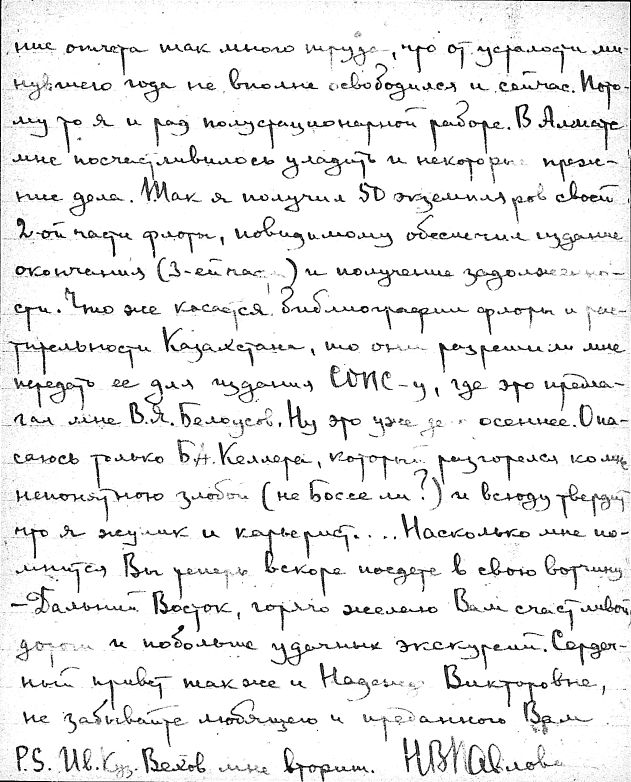 ние отчета так много труда, что от усталости ми-
нувшего года не вполне освободился и сейчас. Пото-
му то я и рад полустационарной работе. В Алмате
мне посчастливилось уладить и некоторые преж-
ние дела. Так я получил 50 экземпляров своей
2-ой части флоры, повидимому обеспечил издание
окончания (3-ей части) и получение задолженно-
сти. Что же касается библиографии флоры и рас-
тительности Казахстана, то они разрешили мне
передать ее для издания СОПС-у, где это предла-
гал мне В.Я. Белоусов. Ну это уже дело осеннее. Опа-
саюсь только Б.А. Келлера, который разгорелся ко мне
непонятною злобой (не Боссе ли?) и всюду твердит
что я жулик и карьерист.... Насколько мне по-
мнится Вы теперь вскоре поедете в свою вотчину
– Дальний Восток, горячо желаю Вам счастливой
дороги и побольше удачных экскурсий. Сердеч-
ный привет также и Надежде Викторовне,
не забывайте любящего и преданного Вам
P.S. Ив. Куз. Вехов мне вторит. НВПавлова